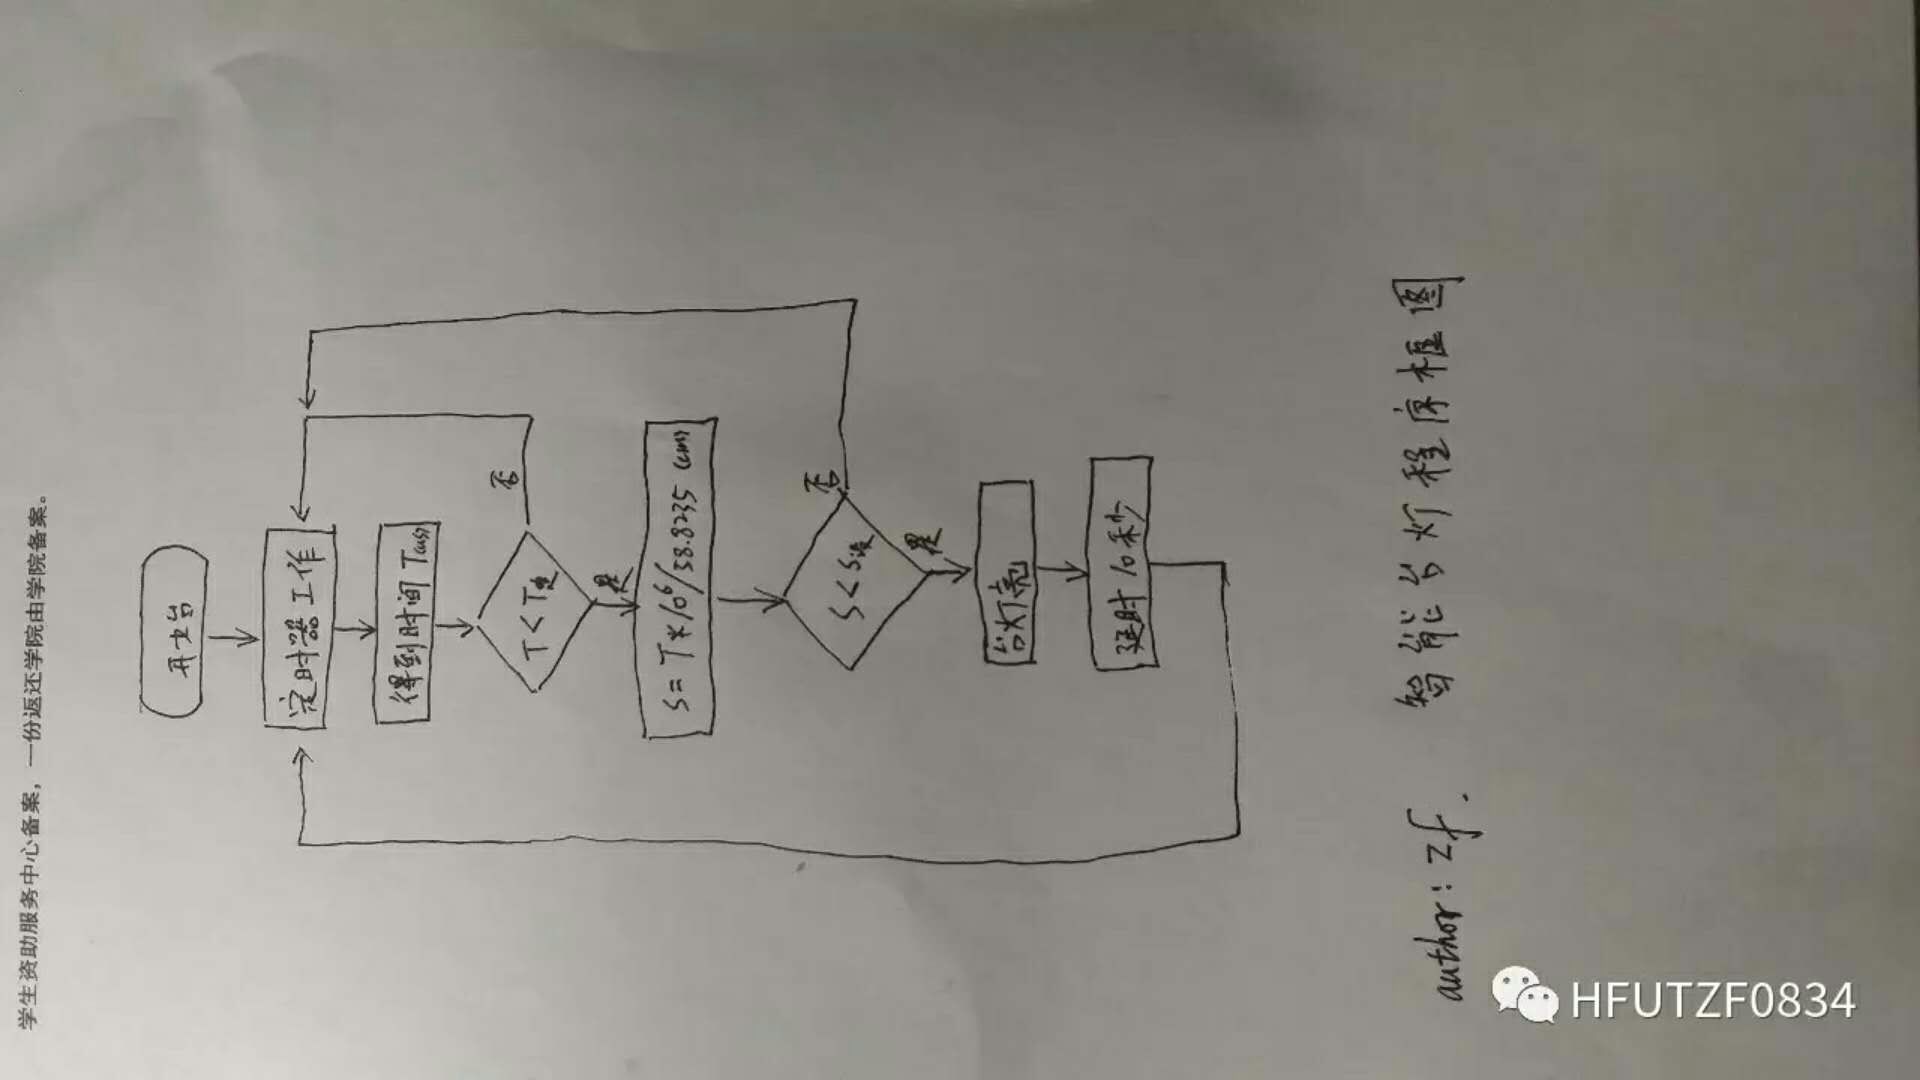 学生资助服务中心备案，一份返还学院由学院备案。
开始
定时器工作
得到时间 T(us)
T < T定
否
是
S = T * 10⁶/58.8235 (cm)
S < S设
否
是
台灯亮
延时10秒
智能台灯程序框图
author: zf.
HFUTZF0834